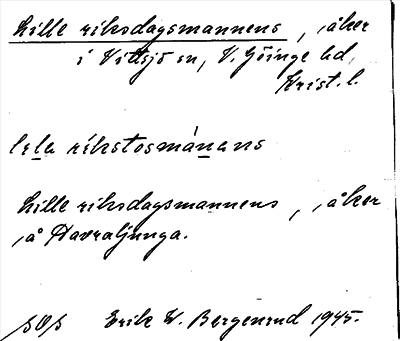 Lille riksdagsmannens, åker
i Vittsjö sn, V. Göinge hd,
Krist. l.
lɩla rikstosmánans
Lille riksdagsmannens, åker
å Havraljunga.
Erik W. Bergenrud 1945.